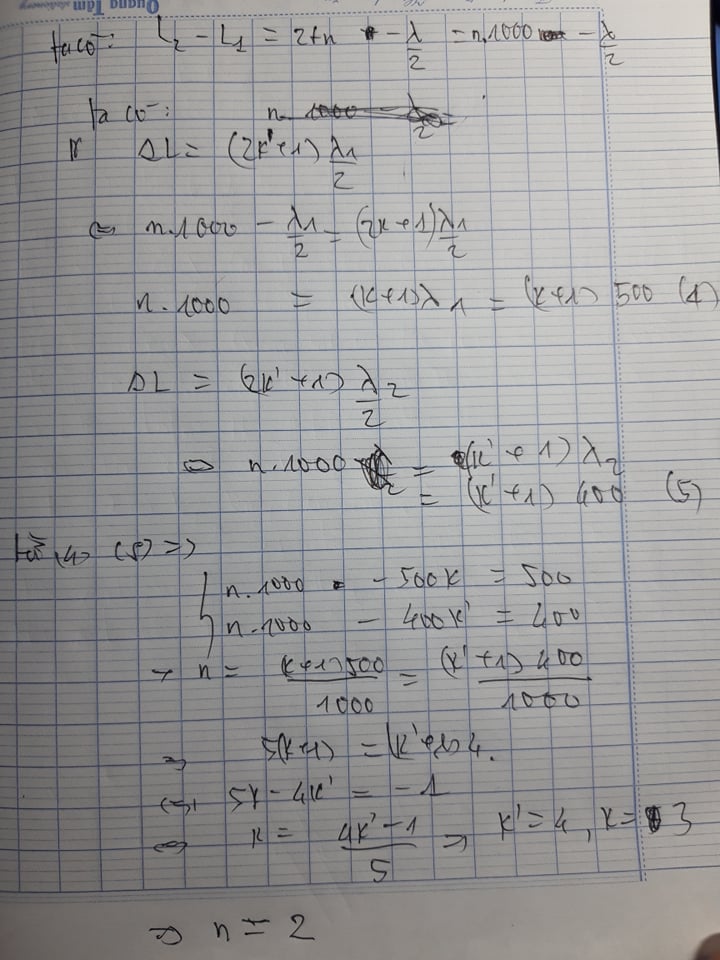 Quang Tám
ta có: L₂ - L₁ = 2tn - λ/2 = n.1000 - λ/2
ta có: n. 1000 - λ/2
ΔL = (2k'+1) λ1/2
⇔ n.1000 - λ1/2 = (2k+1) λ1/2
n.1000 = (k+1) λ1 = (k+1) 500 (4)
ΔL = (2k'+1) λ2/2
⇔ n.1000 = (k'+1) λ2
= (k'+1) 400 (5)
Từ (4) (5) =>
n.1000 - 500k = 500
n.1000 - 400k' = 400
→ n = (k+1)500/1000 = (k'+1)400/1000
⇒ 5(k+1) = (k'+1)4.
⇔ 5k - 4k' = -1
⇔ k = (4k'-1)/5 → k'=4, k=3
⇒ n = 2